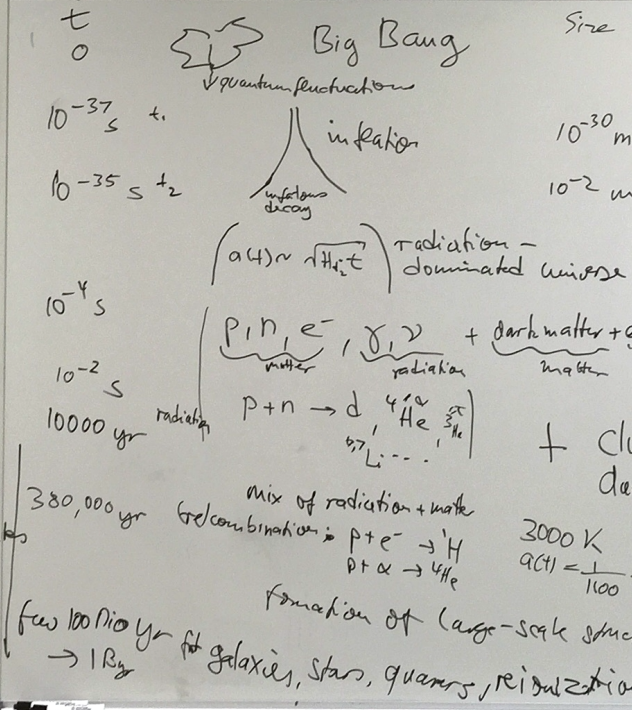 t Big Bang Size
0
↓ quantum fluctuations
10^-37 s t₁ inflation 10^-30 m
10^-35 s t₂ 10^-2 m
decay
(a(t) ~ √ t) radiation-
dominated universe
10^-4 s
p, n, e⁻, γ, ν + dark matter +
matter radiation matter
10^-2 s
p + n → d, ⁴He ³He
10000 yr radiation
⁶,⁷Li ---- + 
mix of radiation + matter
380,000 yr (re)combination: p + e⁻ → ¹H 3000 K
p + α → ⁴He a(t) = 1/1100
formation of large-scale struc
few 100 Mio yr
→ 1 By galaxies, stars, quasars, reionizatio